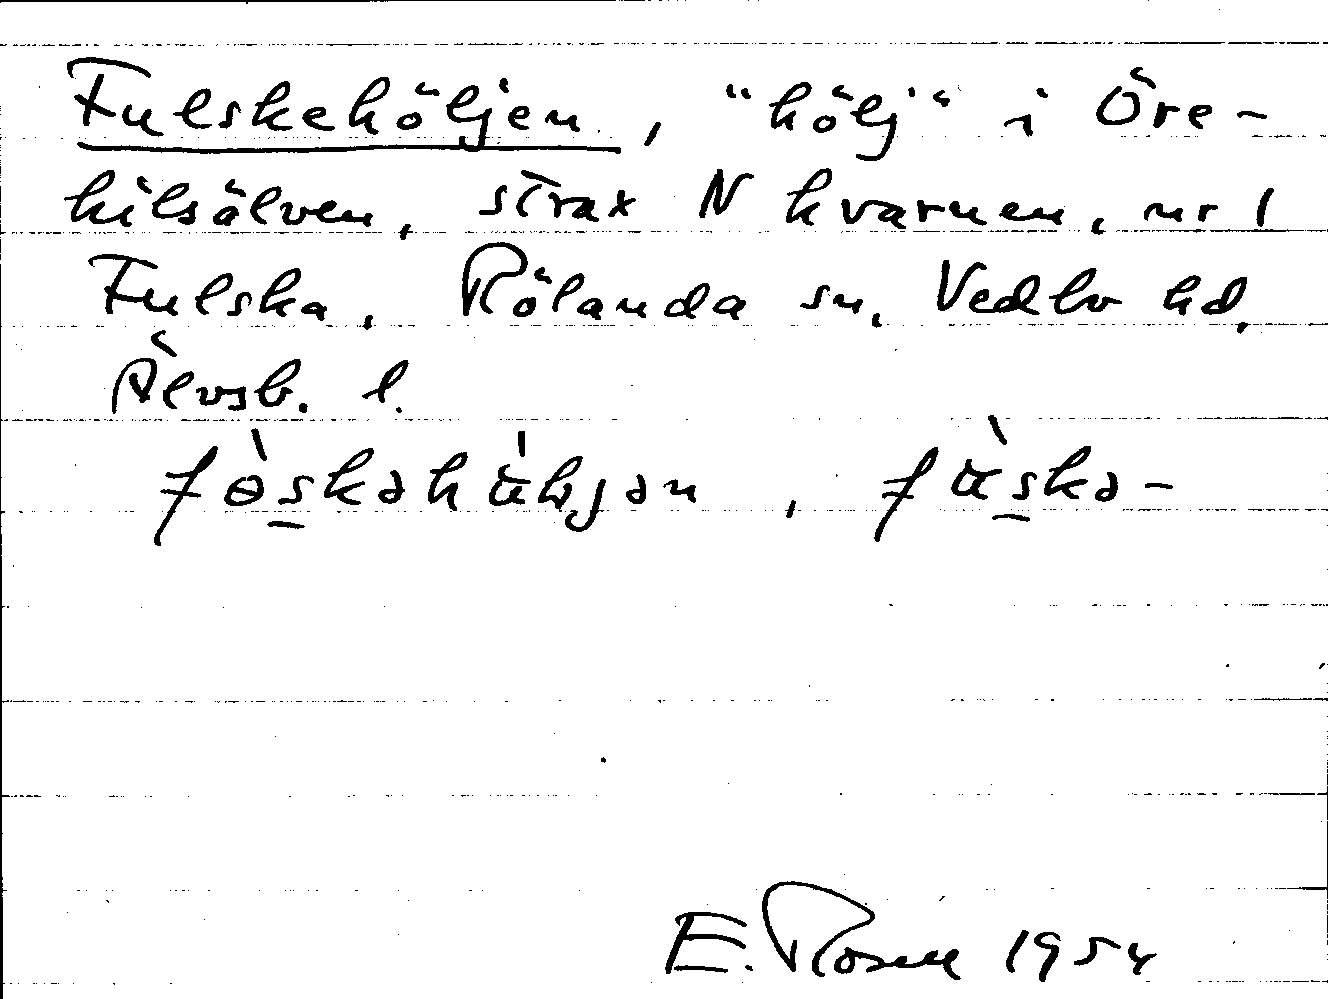 Fulskehöljen, "hölj" i Öre-
kilsälven, strax N kvarnen, nr 1
Fulska, Rölanda sn, Vedbo hd,
Älvsb. l.
E. Rosen 1954